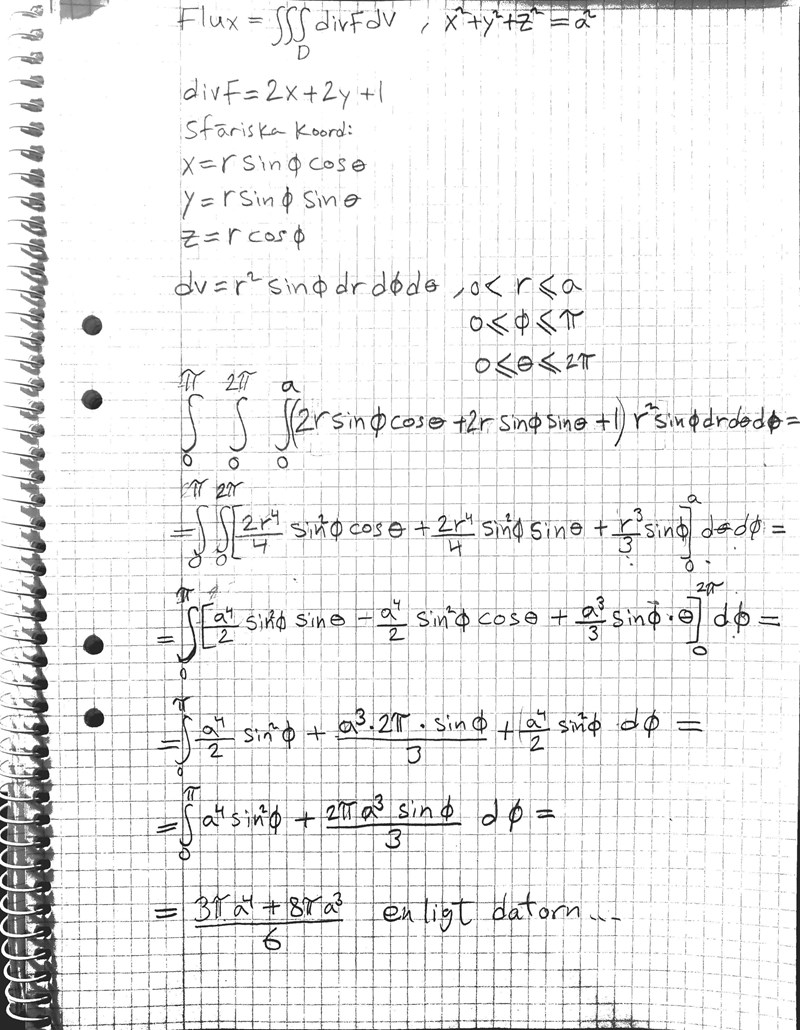 Flux = ∭_D divF dV , x²+y²+z² = a²
divF = 2x+2y+1
Sfäriska Koord:
x = r sinϕ cosθ
y = r sinϕ sinθ
z = r cosϕ
dv = r² sinϕ dr dϕ dθ , 0 < r ⩽ a
0 ⩽ ϕ ⩽ π
0 ⩽ θ ⩽ 2π
∫_0^π ∫_0^{2π} ∫_0^a (2r sinϕ cosθ + 2r sinϕ sinθ + 1) r² sinϕ dr dθ dϕ =
= ∫_0^π ∫_0^{2π} [2r⁴/4 sin²ϕ cosθ + 2r⁴/4 sin²ϕ sinθ + r³/3 sinϕ]_0^a dθ dϕ =
= ∫_0^π [a⁴/2 sin²ϕ sinθ − a⁴/2 sin²ϕ cosθ + a³/3 sinϕ · θ]_0^{2π} dϕ =
= ∫_0^π a⁴/2 sin²ϕ + (a³·2π · sinϕ)/3 + a⁴/2 sin²ϕ dϕ =
= ∫_0^π a⁴ sin²ϕ + (2πa³ sinϕ)/3 dϕ =
= (3πa⁴ + 8πa³)/6 enligt datorn...